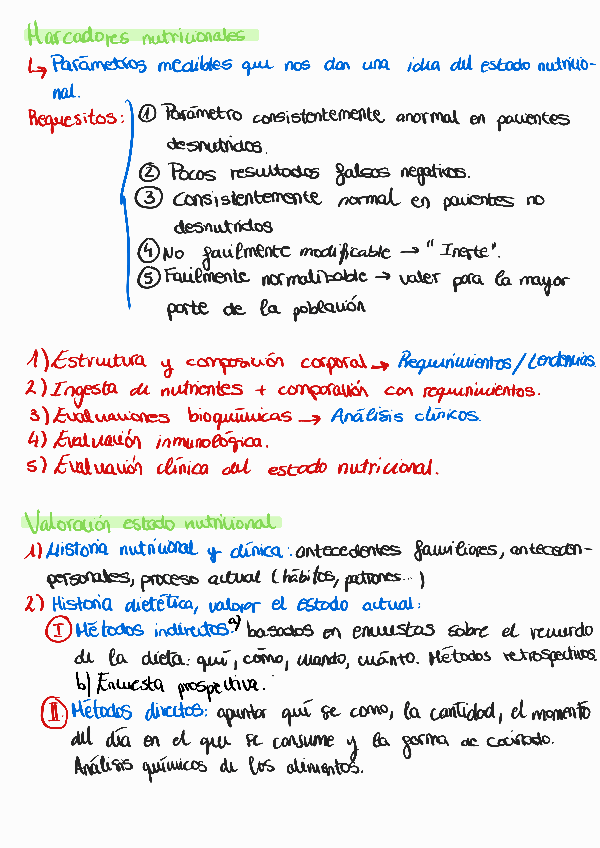 Marcadores nutricionales
↳ Parámetros medibles que nos dan una idea del estado nutricio-
nal.
Requesitos: ① Parámetro consistentemente anormal en pacientes
desnutridos.
② Pocos resultados falsos negativos.
③ Consistentemente normal en pacientes no
desnutridos
④ No facilmente modificable → "Inerte".
⑤ Facilmente normalizable → valer para la mayor
parte de la población
1) Estructura y composición corporal → Requirimientos/tendencias.
2) Ingesta de nutrientes + comparación con requirimientos.
3) Evaluaciones bioquímicas → Análisis clínicos.
4) Evaluación inmunológica.
5) Evaluación clínica del estado nutricional.
Valoración estado nutricional
1) Historia nutricional y clínica: antecedentes familiares, anteceden-
personales, proceso actual (hábitos, patrones...)
2) Historia dietética, valorar el estado actual:
Ⓘ Métodos indirectos: a) basados en encuestas sobre el recuerdo
de la dieta: qué, cómo, cuando, cuánto. Métodos retrospectivos.
b) Encuesta prospectiva.
II. Métodos directos: apuntar qué se come, la cantidad, el momento
del día en el que se consume y la forma de cocinado.
Análisis químicos de los alimentos.